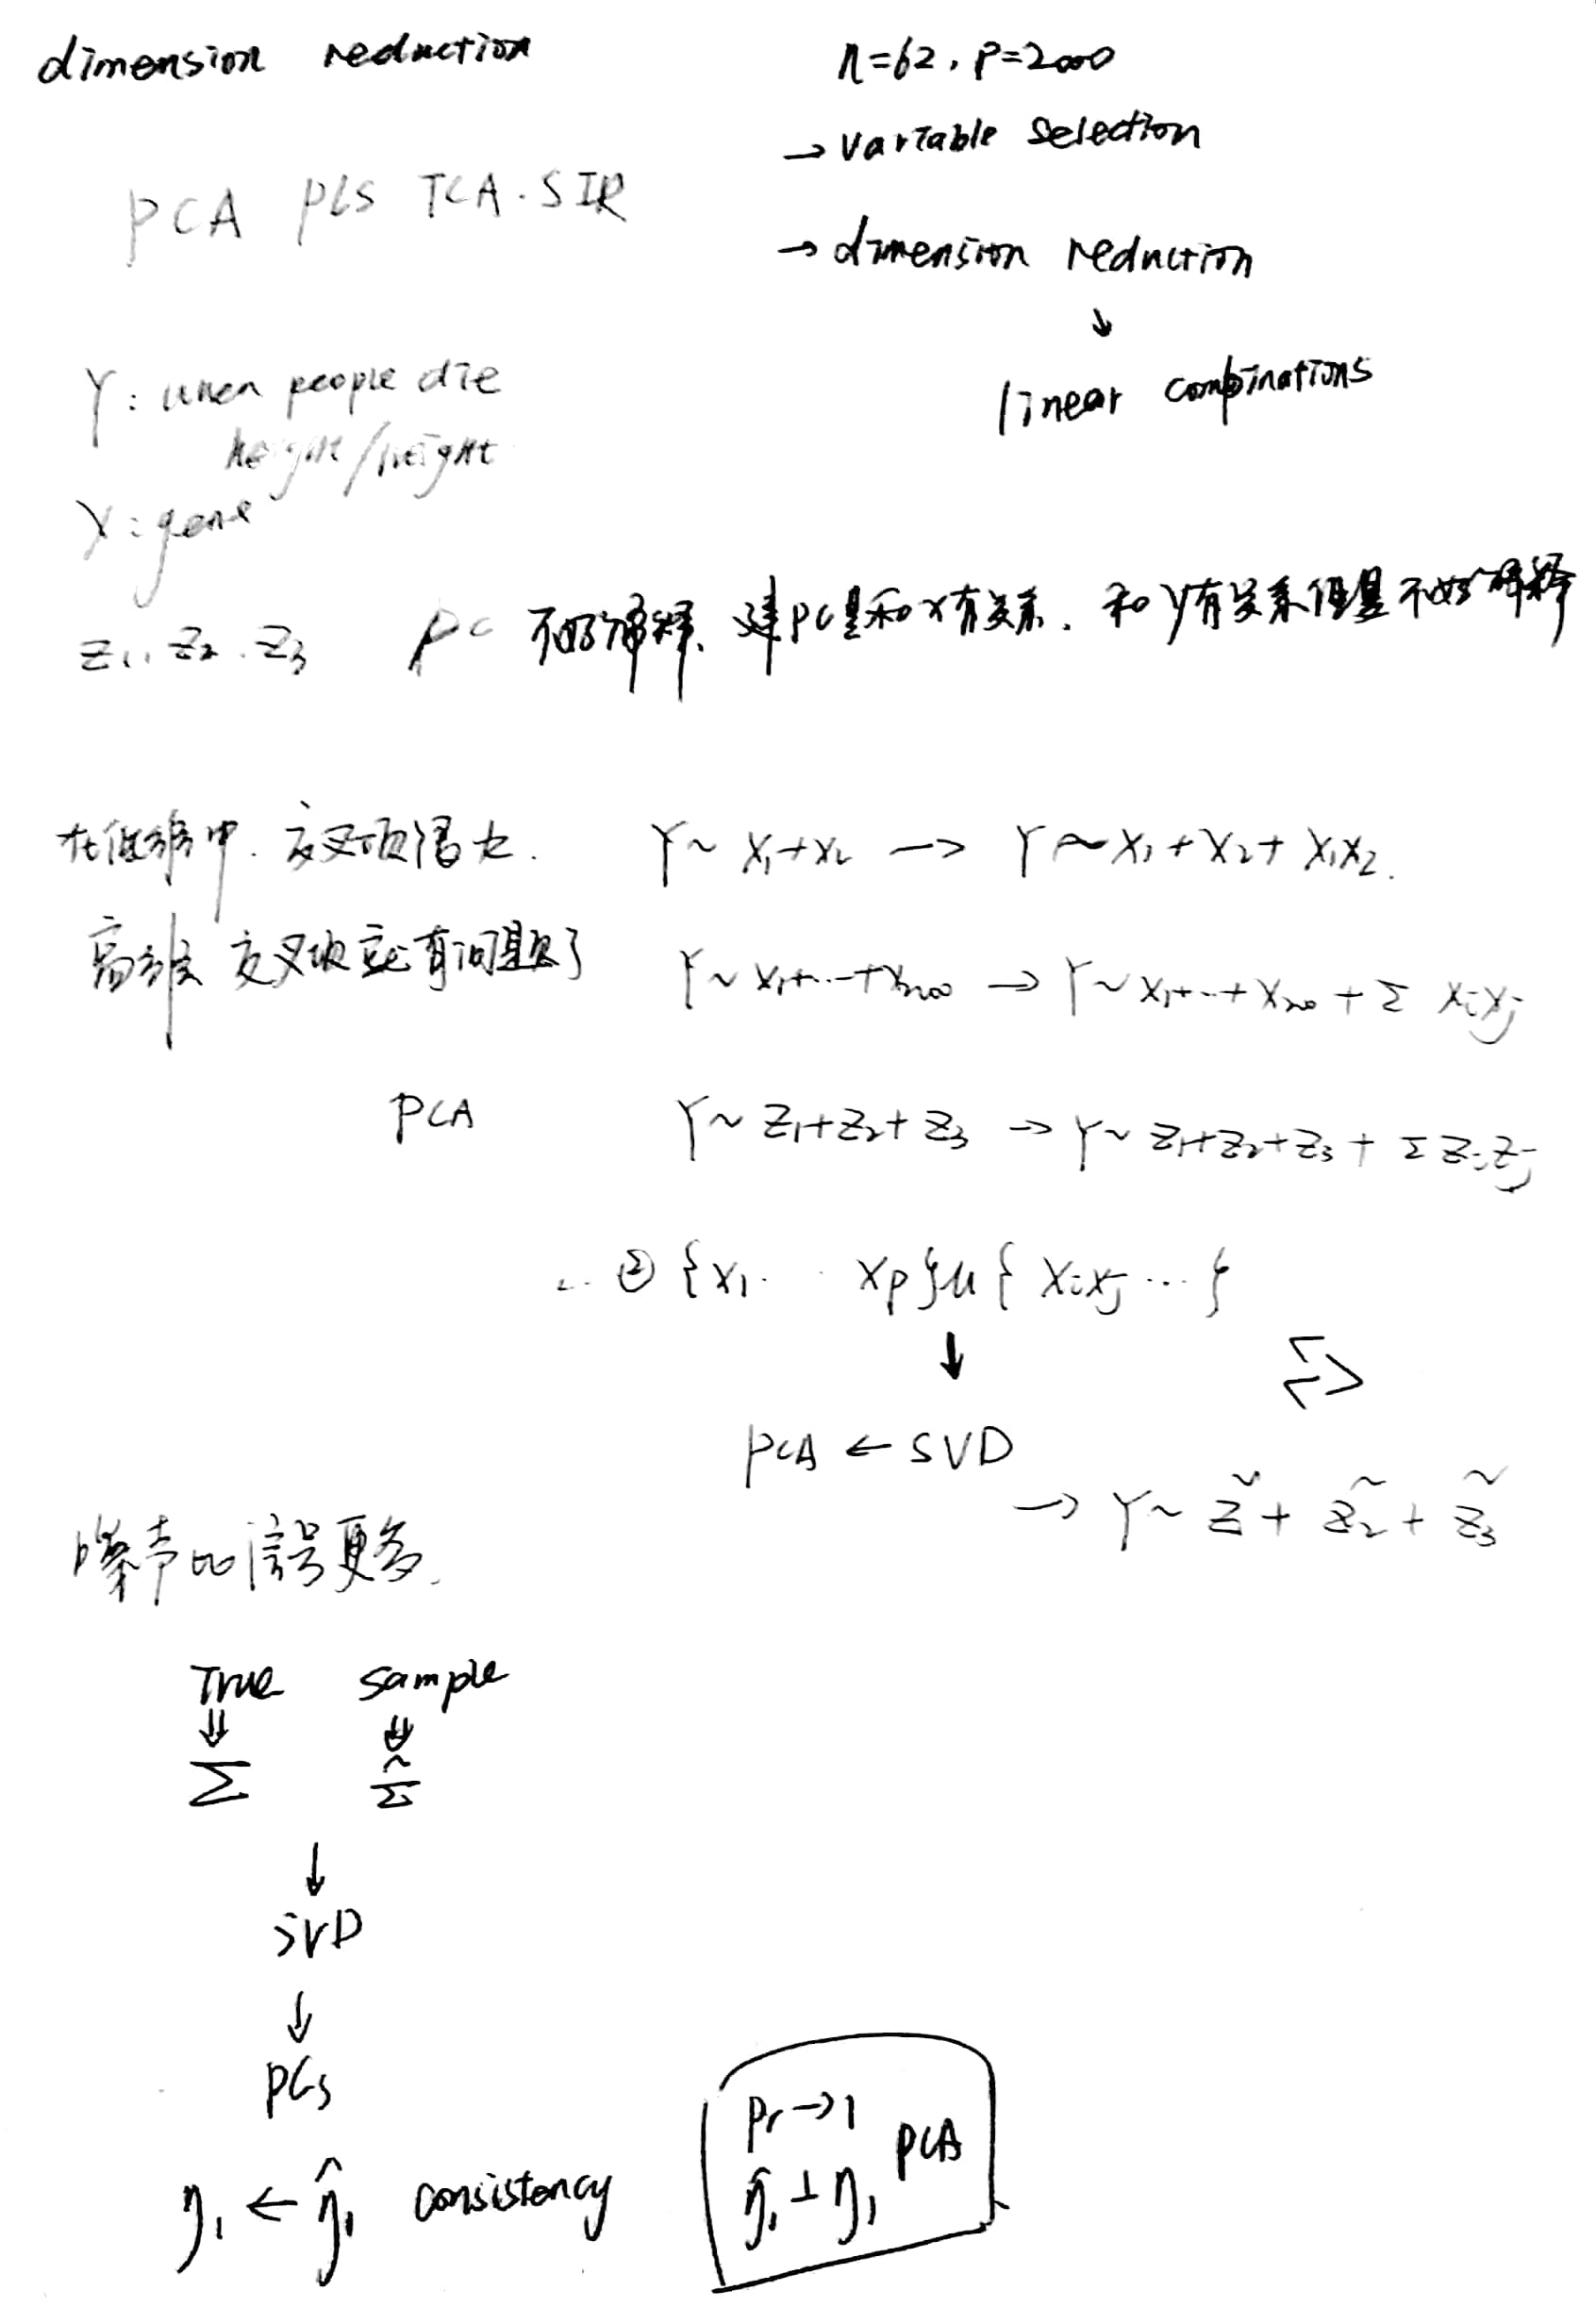 dimension reduction
n=62, p=2000
→ variable selection
PCA PLS ICA. SIR
→ dimension reduction
↓
linear combinations
Y: when people die
height/weight
X: gene
Z1, Z2, Z3 PC 不好解释, 建PC是和X有关系, 和Y有关系但是不好解释
在低维中, 交叉项
Y~X1+X2 → Y~X1+X2+X1X2.
高维 交叉项就有问题了
Y~X1+...+X2000 → Y~X1+...+X2000 + Σ XiXj
PCA Y~Z1+Z2+Z3 → Y~Z1+Z2+Z3 + ΣZiZj
② {X1 ... Xp}∪{XiXj ...}
↓
PCA ← SVD
→ Y~Z̃1+Z̃2+Z̃3
噪声比信号更多.
True Sample
⇓ ⇓
Σ Σ̂
↓
SVD
↓
PCs
η1 ← η̂1 consistency
Pr→1
PCA
η̂1 ⊥ η1